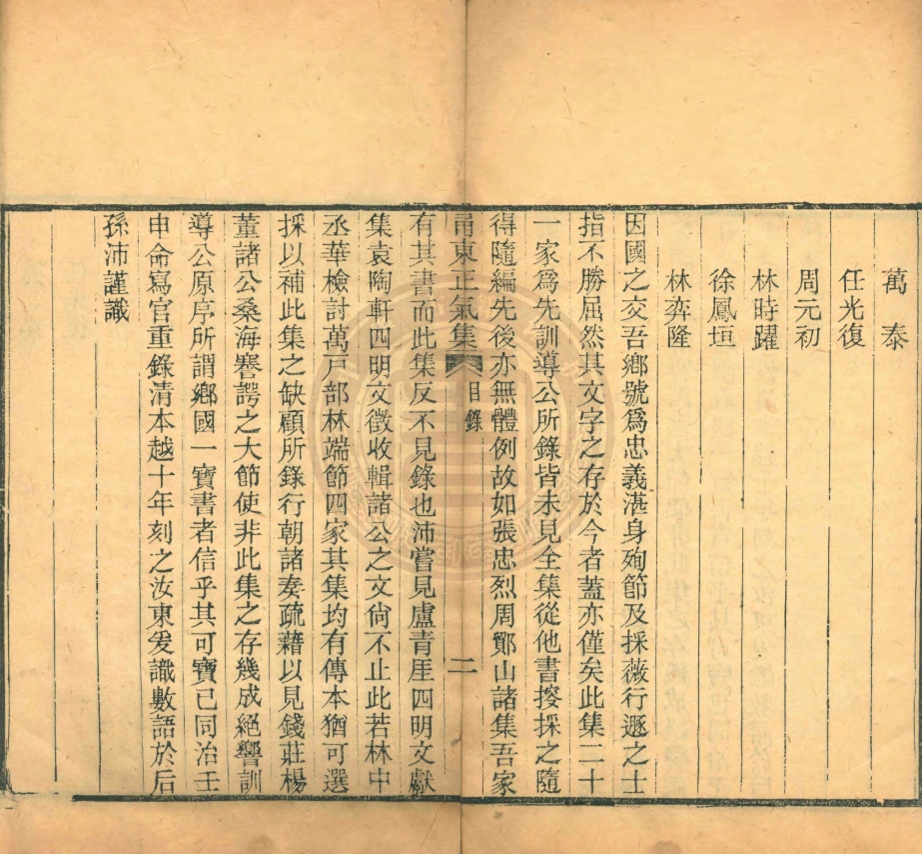 萬泰
任光復
周元初
林時躍
徐鳳垣
林弈隆
因國之交吾鄉號爲忠義湛身殉節及採薇行遯之士
指不勝屈然其文字之存於今者蓋亦僅矣此集二十
一家爲先訓導公所錄皆未見全集從他書搜採之隨
得隨編先後亦無體例故如張忠烈周鄮山諸集吾家
甬東正氣集 目錄 二
有其書而此集反不見錄也沛嘗見盧青厓四明文獻
集袁陶軒四明文徵收輯諸公之文尙不止此若林中
丞華檢討萬戸部林端節四家其集均有傳本猶可選
採以補此集之缺顧所錄行朝諸奏疏藉以見錢莊楊
董諸公桑海謇諤之大節使非此集之存幾成絕響訓
導公原序所謂鄉國一寶書者信乎其可寶已同治壬
申命寫官重錄清本越十年刻之汝東爰識數語於后
孫沛謹識